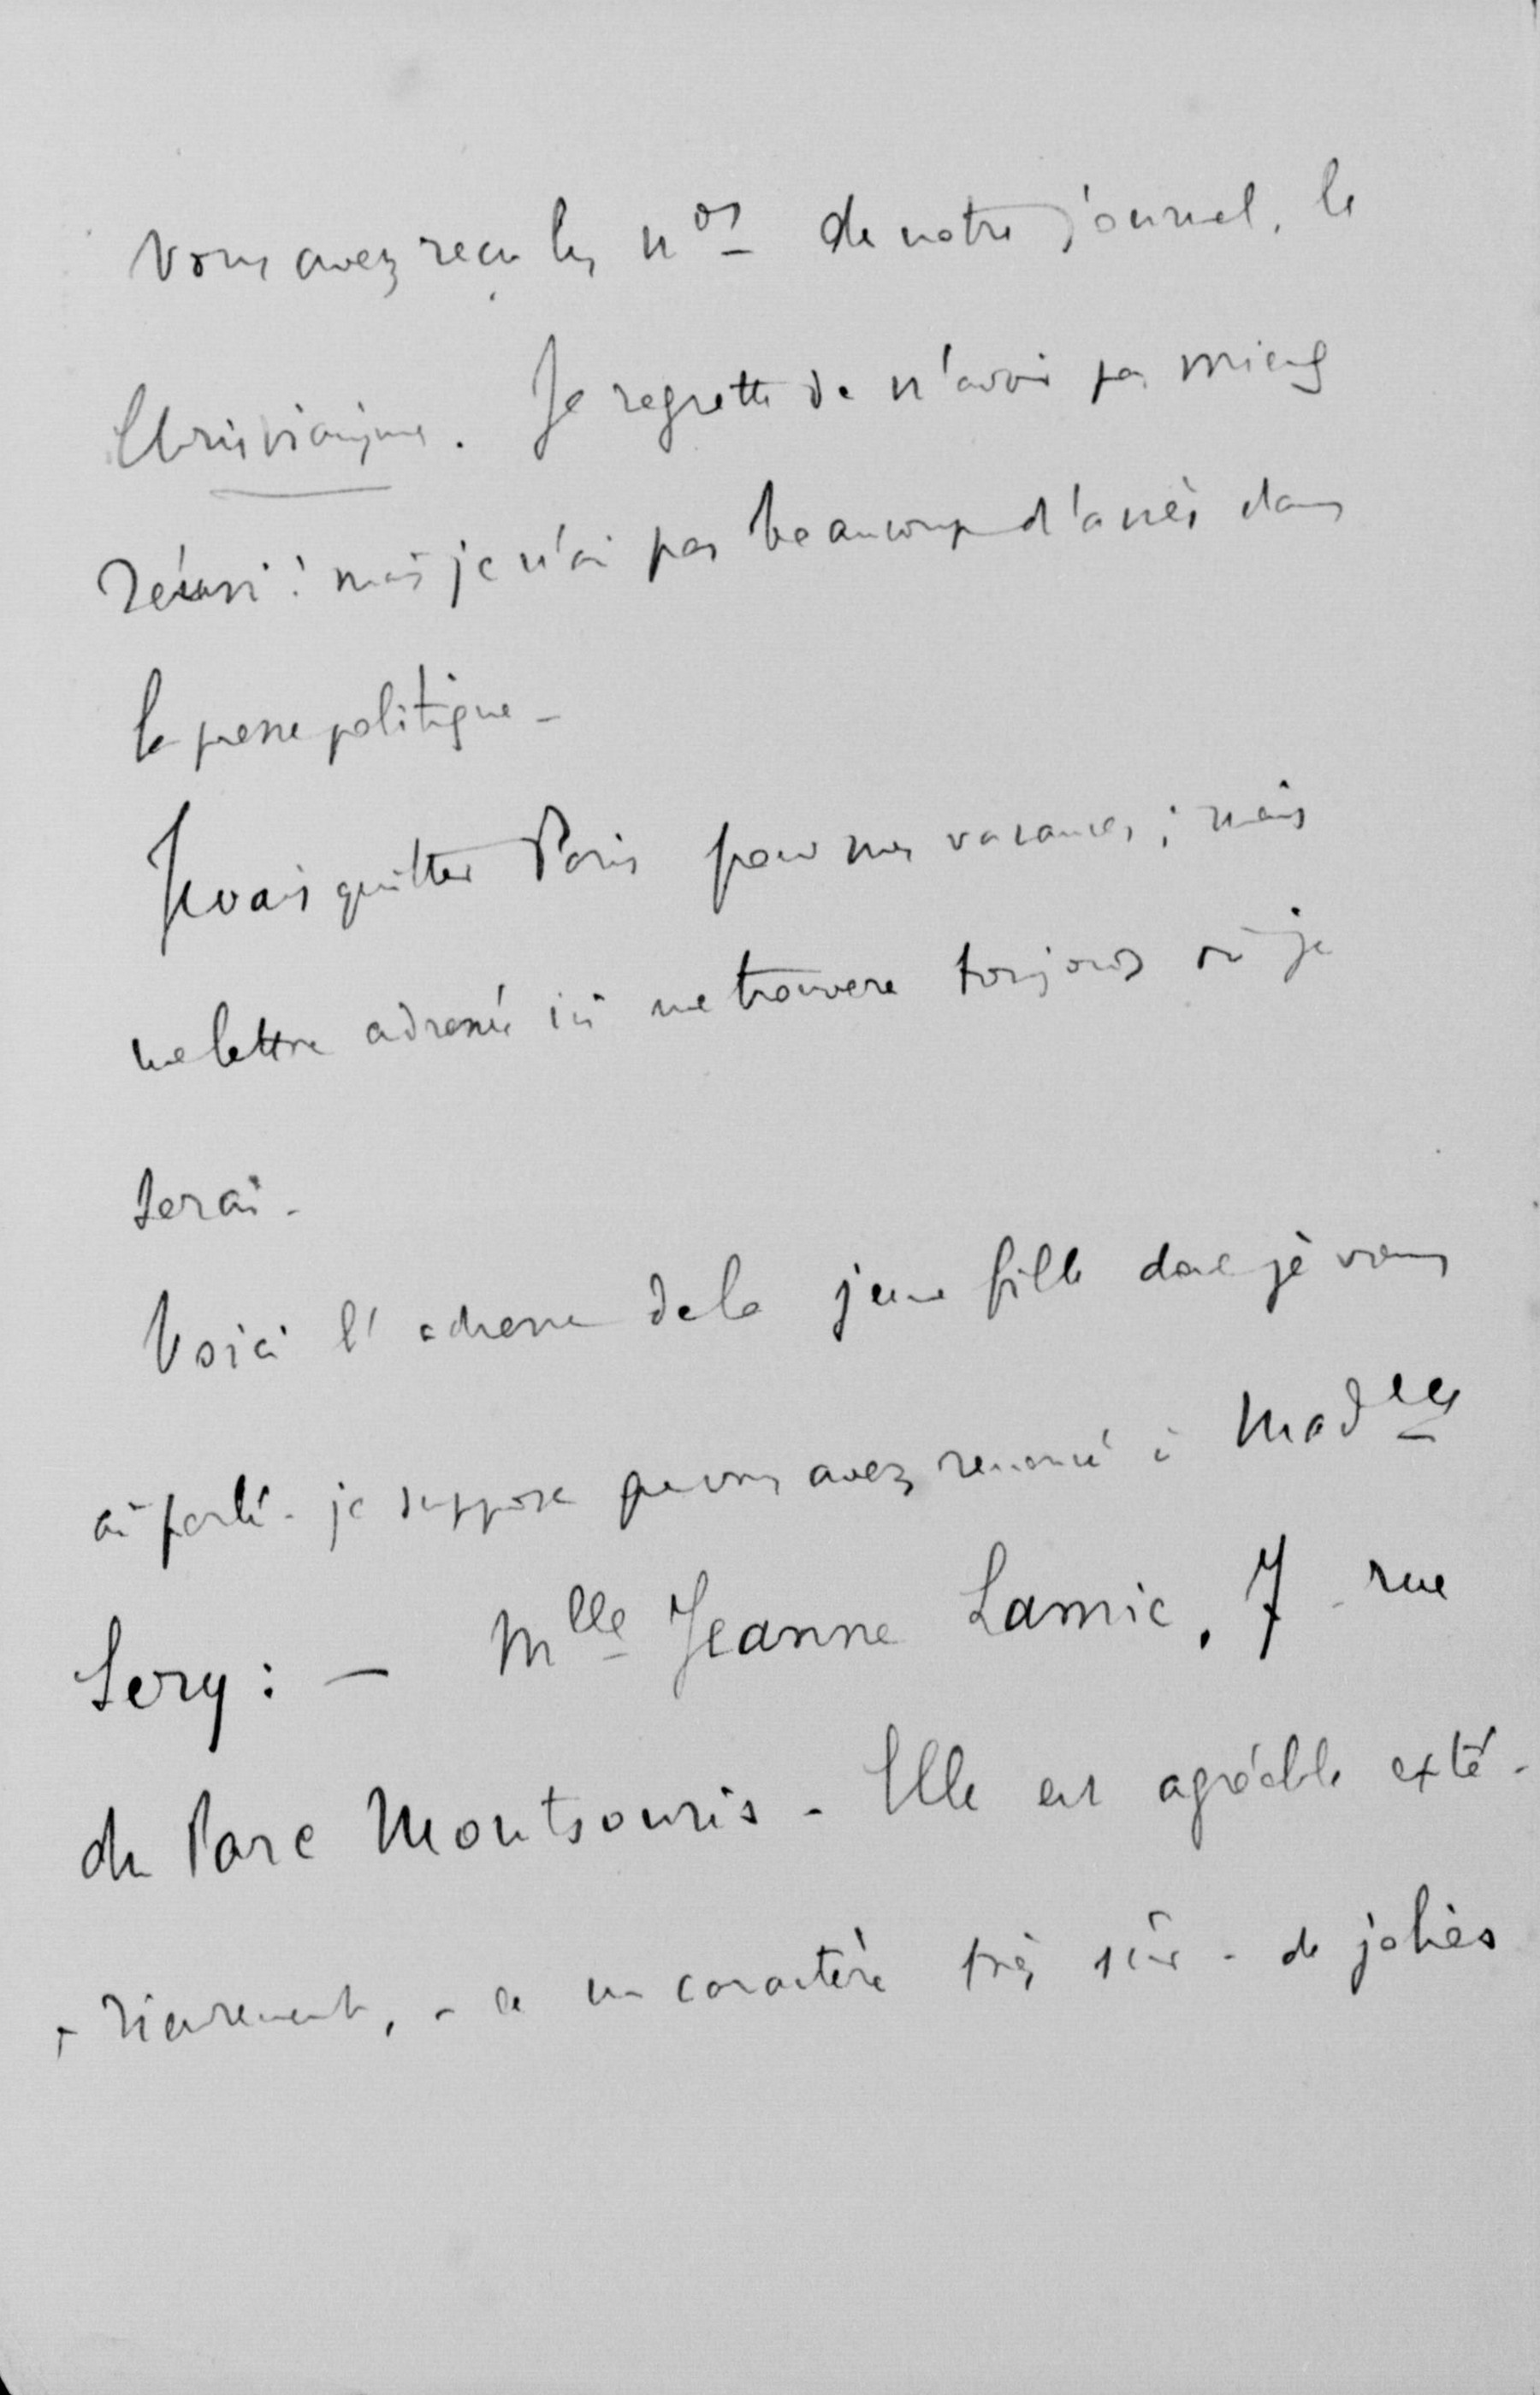 Vous avez reçu les nos de notre journal, le
Christianisme. Je regrette de n'avoir pas mieux
réussi : mais je n'ai pas beaucoup d'accès dans
la presse politique -
Je vais quitter Paris pour mes vacances ; mais
une lettre adressée ici me trouvera toujours où je
serai -
Voici l'adresse de la jeune fille dont je vous
ai parlé - je suppose que vous avez renoncé à Madelle
Sery : - Mlle Jeanne Lamic, 7 - rue
du Parc Montsouris - Elle est agréable exté-
- rieurement, - a un caractère très sûr - de jolies